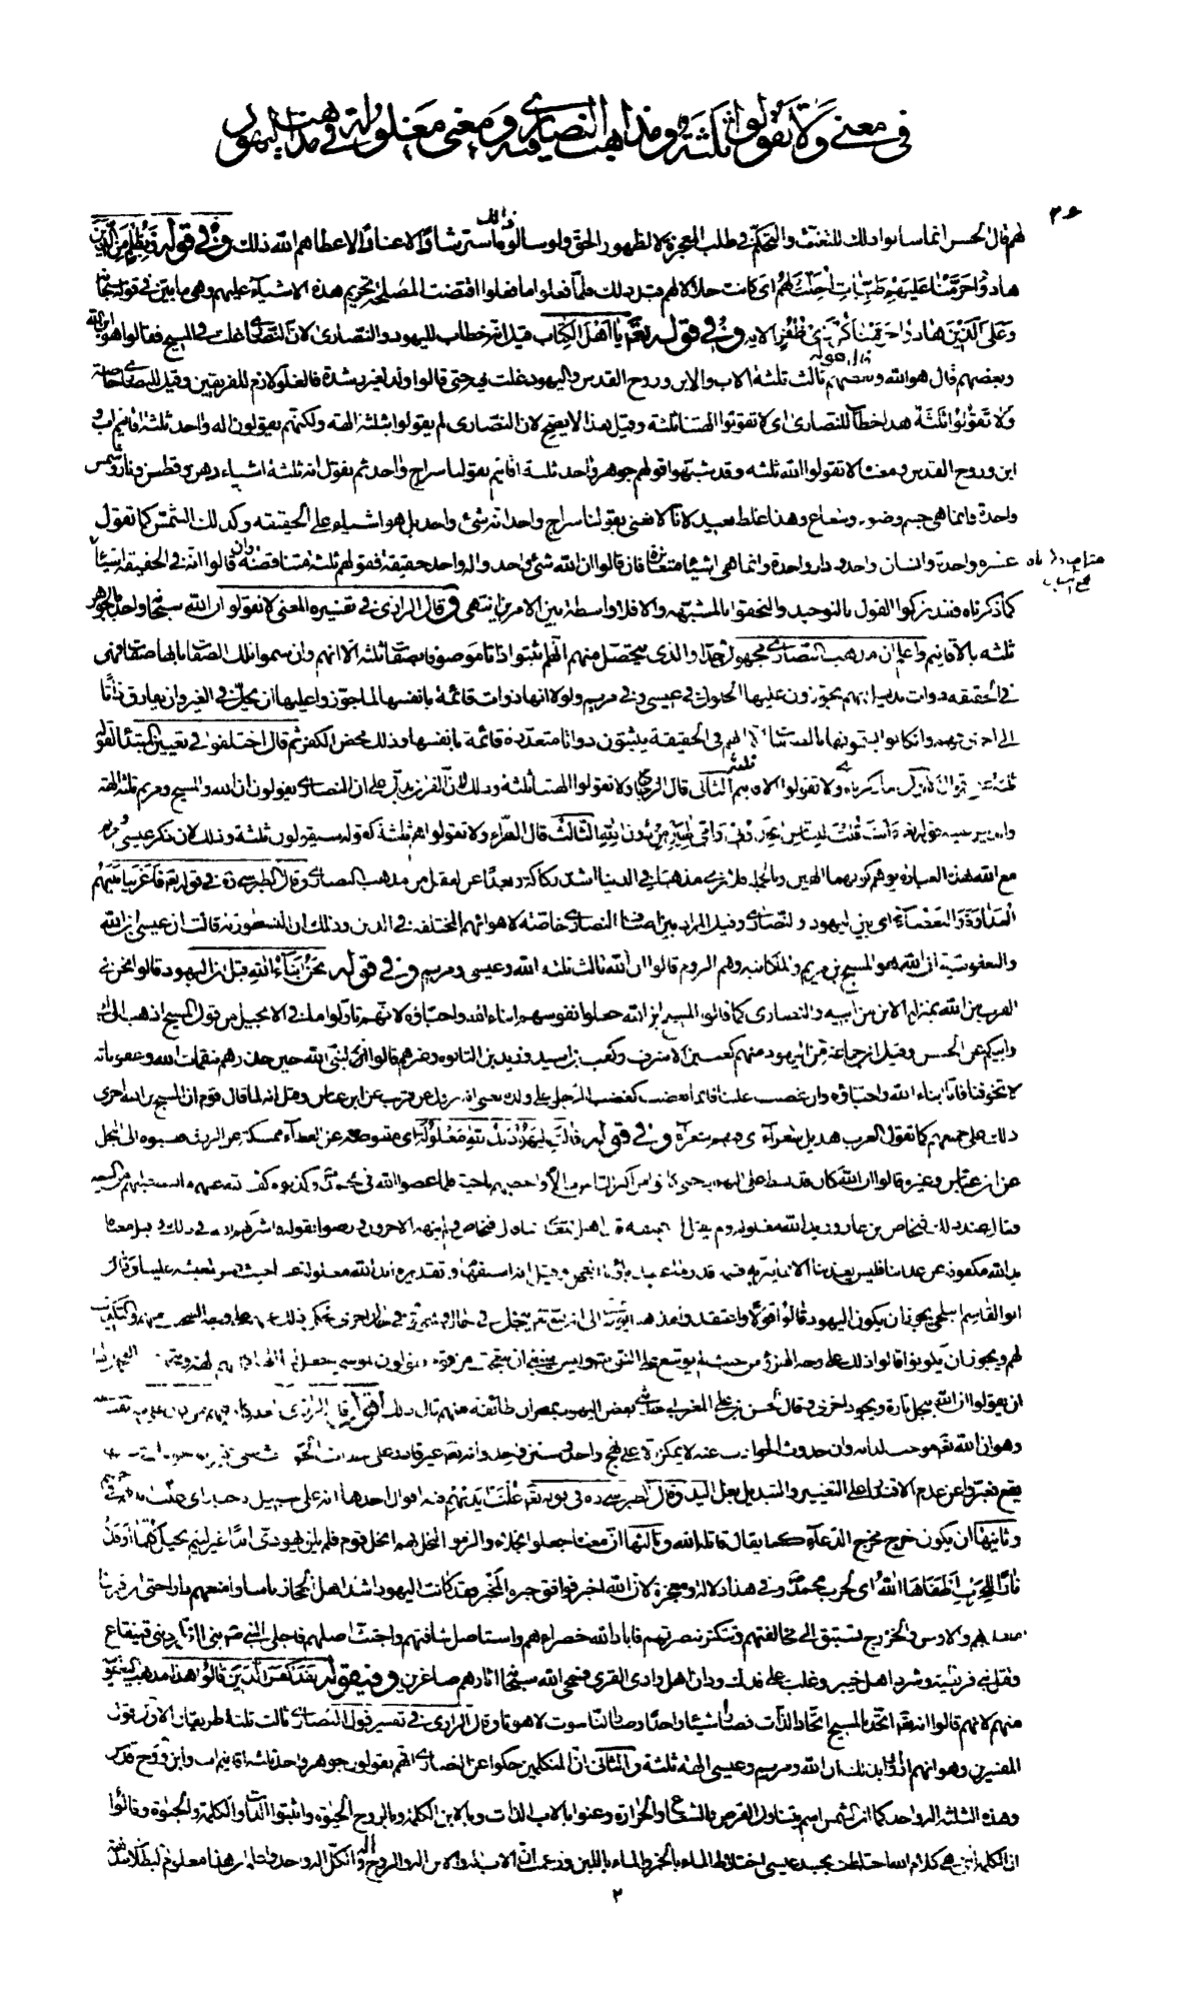 في معنى ولا تقولوا ثلثة ومذاهب النصارى فيه ومعنى مغلولة في مذاهب اليهود
٣۶
لهم قال الحسن انما سالوا ذلك للتعنت والتحكم في طلب المعجزة لا لظهور الحق ولو سالوا ذلك استرشادا لا عنادا لاعطاهم الله ذلك وفي قوله فبظلم من الذين
هادوا حرمنا عليهم طيبات احلت لهم اى كانت حلالا لهم قبل ذلك فلما فعلوا ما فعلوا اقتضت المصلحة تحريم هذه الاشياء عليهم وهي ما بين في قوله سبحانه
وعلى الذين هادوا حرمنا كل ذي ظفر الاية وفي قوله تعم يا اهل الكتاب قيل انه خطاب لليهود والنصارى لان النصارى غلت في المسيح فقالوا هو ابن الله
وبعضهم قال هو الله وبعضهم قال هو ثالث ثلثة الاب والابن وروح القدس واليهود غلت فيه حتى قالوا ولد لغير رشدة فالغلو لازم للفريقين وقيل للنصارى خاصة
ولا تقولوا ثلثة هذا خطاب للنصارى اى لا تقولوا الهتنا ثلثة وقيل هذا لا يصح لان النصارى لم يقولوا بثلثة الهة ولكنهم يقولون اله واحد ثلثة اقانيم اب و
ابن وروح القدس ومعناه لا تقولوا الله ثلثة وقد شبهوا قولهم جوهر واحد ثلثة اقانيم بقولنا سراج واحد ثم نقول انه ثلثة اشياء دهن وقطن ونار وشمس
واحدة وانما هي جسم وضوء وشعاع وهذا غلط بعيد لانا لا نعني بقولنا سراج واحد انه شئ واحد بل هو اشياء على الحقيقة وكذلك الشمس كما نقول
عشرة واحدة وانسان واحد ودار واحدة وانما هي اشياء متغايرة فان قالوا ان الله شئ واحد واله واحد حقيقة فقولهم ثلثة متناقضة وان قالوا انه في الحقيقة اشياء
كما ذكرناه فقد تركوا القول بالتوحيد والتحقوا بالمشبهة والا فلا واسطة بين الامرين انتهى وقال الرازى في تفسيره المعنى لا تقولوا ان الله سبحانه واحد بالجوهر
ثلثة بالاقانيم واعلم ان مذهب النصارى مجهول جدا والذى يتحصل منهم انهم اثبتوا ذاتا موصوفة بصفات ثلثة الا انهم وان سموا تلك الصفات بانها صفات فهي
في الحقيقة ذوات بدليل انهم يجوزون عليها الحلول في عيسى وفي مريم ولولا انها ذوات قائمة بانفسها لما جوزوا عليها ان يحل في الغير وان يفارق ذاتا
الى اخرى فهم وان كانوا يسمونها بالصفات الا انهم في الحقيقة يثبتون ذواتا متعددة قائمة بانفسها وذلك محض الكفر ثم قال اختلفوا في تعيين المبتدأ لقوله
ثلثة على اقوال الاول ما ذكرناه ولا تقولوا الاقانيم ثلثة الثاني قال الزجاج ولا تقولوا الهتنا ثلثة وذلك لان القران يدل على ان النصارى يقولون ان الله والمسيح ومريم ثلثة الهة
والدليل عليه قوله تعم ءانت قلت للناس اتخذوني وامي الهين من دون الله الثالث قال الفراء ولا تقولوا هم ثلثة كقوله سيقولون ثلثة وذلك لان ذكر عيسى ومريم
مع الله بهذه العبارة يوهم كونهما الهين وبالجملة فلا نرى مذهبا في الدنيا اشد ركاكة وبعدا عن العقل من مذهب النصارى وقال الطبرسي ره في قوله تعم فاغرينا بينهم
العداوة والبغضاء اى بين اليهود والنصارى وقيل المراد بين اصناف النصارى خاصة لاهوائهم المختلفة في الدين وذلك ان النسطورية قالت ان عيسى ابن الله
واليعقوبية ان الله هو المسيح بن مريم والملكانية وهم الروم قالوا ان الله ثالث ثلثة الله وعيسى ومريم وفي قوله نحن ابناء الله قيل ان اليهود قالوا نحن في
القرب من الله بمنزلة الابن من ابيه والنصارى كما قالوا المسيح ابن الله جعلوا نفوسهم ابناء الله واحباؤه لانهم تاولوا ما في الانجيل من قول المسيح اذهب الى ابي
وابيكم عن الحسن وقيل ان جماعة من اليهود منهم كعب بن الاشرف وكعب بن اسيد وزيد بن التابوه وغيرهم قالوا لنبي الله حين حذرهم بنقمات الله وعقوباته
لا تخوفنا فانا ابناء الله واحباؤه وان غضب علينا فانما يغضب كغضب الرجل على ولده يعني انه يزول عن قريب عن ابن عباس وقيل انه لما قال قوم ان المسيح بن الله اجرى
ذلك على جميعهم كما تقول العرب هذيل شعراء اى فيهم شعراء وفي قوله قالت اليهود يد الله مغلولة اى مقبوضة عن العطاء ممسكة عن الرزق فنسبوه الى البخل
عن ابن عباس وغيره قالوا ان الله كان قد بسط على اليهود حتى كانوا من اكثر الناس مالا واخصبهم ناحية فلما عصوا الله في محمد ص وكذبوه كف الله عنهم ما بسط عليهم من السعة
فقال عند ذلك فنحاص بن عازورا يد الله مغلولة ولم يقل الى عنقه قال اهل المعاني انما قال فنحاص ولم ينهه الاخرون ورضوا بقوله اشركهم الله في ذلك وقيل معناه
يد الله مكفوفة عن عذابنا فليس يعذبنا الا بما يبر به قسمه قدر ما عبد اباؤنا العجل وقيل انه استفهام وتقديره ايد الله مغلولة عنا حيث قتر المعيشة علينا وقال
ابو القاسم البلخي يجوز ان يكون اليهود قالوا قولا واعتقدوا مذهبا يؤدى الى ان الله تعم يبخل في حال ويجود في حال اخرى فحكى ذلك عنهم على وجه التعجب منهم والتكذيب
لهم ويجوز ان يكونوا قالوا ذلك على وجه الهزؤ من حيث لم يوسع على النبي ص وليس ينبغي ان يتعجب من قوم يقولون لموسى اجعل لنا الها كما لهم الهة
ان يقولوا ان الله يبخل تارة ويجود اخرى وقال الحسن بن علي المغربي حدثني بعض اليهود بمصر ان طائفة منهم قال ذلك انتهى
وهو ان الله تعم موجب لذاته وان حدوث الحوادث عنه لا يمكن الا على نهج واحد وسنن واحد وانه تعم غير قادر على احداث الحوادث
يقع فعبروا عن عدم الاقتدار على التغيير والتبديل بغل اليد وقال الطبرسي ره في قوله تعم غلت ايديهم فيه اقوال احدها انه على سبيل الاخبار اى غلت ايديهم في جهنم
وثانيها ان يكون خرج مخرج الدعاء كما يقال قاتله الله وثالثها ان معناه جعلوا بخلاء والزموا البخل فهم ابخل قوم فلا يلقى يهودى ابدا غير لئيم بخيل كلما اوقدوا
نارا للحرب اطفاها الله اى لحرب محمد ص وفي هذا دلالة ومعجزة لان الله اخبر فوافق خبره المخبر فقد كانت اليهود اشد اهل الحجاز باسا وامنعهم دارا حتى ان قريشا
تعتضد بهم والاوس والخزرج تستبق الى مخالفتهم وتتكثر بنصرتهم فاباد الله خضراءهم واستاصل شافتهم واجتث اصلهم فاجلى النبي ص بني النضير وبني قينقاع
وقتل بني قريظة وشرد اهل خيبر وغلب على فدك ودان له اهل وادى القرى فمحى الله سبحانه اثارهم صاغرين وفي قوله لقد كفر الذين قالوا هذا مذهب اليعقوبية
منهم لانهم قالوا ان الله اتحد بالمسيح اتحاد الذات فصارا شيئا واحدا وصار الناسوت لاهوتا وقال الرازى في تفسير قول النصارى ثالث ثلثة طريقان الاول قول
المفسرين وهو انهم ارادوا بذلك ان الله ومريم وعيسى الهة ثلثة والثاني ان المتكلمين حكوا عن النصارى انهم يقولون جوهر واحد ثلثة اقانيم اب وابن وروح قدس
وهذه الثلثة اله واحد كما ان الشمس اسم يتناول القرص والشعاع والحرارة وعنوا بالاب الذات وبالابن الكلمة وبالروح الحيوة واثبتوا الذات والكلمة والحيوة وقالوا
ان الكلمة التي هي كلام الله اختلطت بجسد عيسى اختلاط الماء بالخمر والماء باللبن وزعموا ان الاب اله والابن اله والروح اله والكل اله واحد واعلم ان هذا معلوم البطلان ببداهة
٢